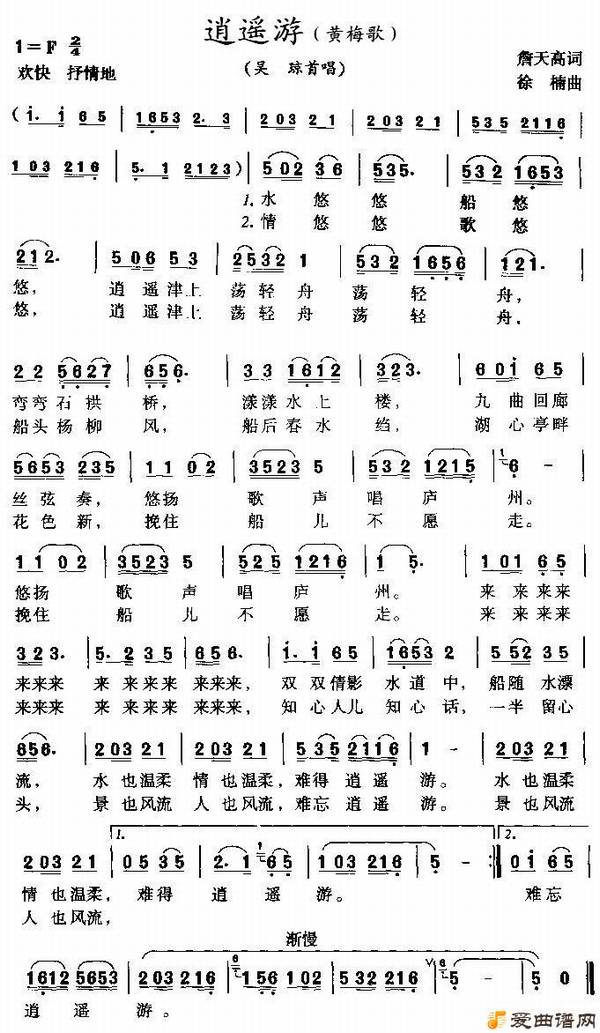 逍遥游（黄梅歌）
1=F 2/4
（吴 琼首唱）
詹天高词
欢快 抒情地
徐 楠曲
（i. i 6 5 | 1653 2. 3 | 2 03 2 1 | 2 03 2 1 | 535 2116 |
1 03 216 | 5. 1 2123）| 502 36 | 535. | 532 1653 |
1.水 悠 悠 船 悠
2.情 悠 悠 歌 悠
212. | 506 53 | 2532 1 | 532 1656 | 121. |
悠， 逍 遥 津 上 荡 轻 舟 荡 轻 舟，
悠， 逍 遥 津 上 荡 轻 舟 荡 轻 舟，
2 2 5627 | 656. | 3 3 1612 | 323. | 6 0i 6 5 |
弯弯石拱 桥， 漾漾水上 楼， 九曲回廊
船头杨柳 风， 船后春水 绉， 湖心亭畔
5653 235 | 11 02 | 3523 5 | 532 1215 | 6 - |
丝弦奏， 悠扬 歌 声 唱庐 州。
花色新， 挽住 船 儿 不愿 走。
11 02 | 3523 5 | 525 1216 | 1 5. | 1 01 6 5 |
悠扬 歌 声 唱庐 州。 来 来来来
挽住 船 儿 不愿 走。 来 来来来
323. | 5. 235 | 656. | i. i 6 5 | 1653 2 | 5 52 35 |
来来来 来 来来来 来来来， 双 双倩影 水道中， 船随水漂
来来来 来 来来来 来来来， 知心人儿 知心话， 一半留心
656. | 2 03 21 | 2 03 21 | 535 2116 | 1 - | 2 03 21 |
流， 水也温柔 情也温柔，难得逍遥 游。 水也温柔
头， 景也风流 人也风流，难忘逍遥 游。 景也风流
1.
2.
2 03 21 | 05 35 | 2. 1 65 | 103 2216 | 5 - :| 0i 65 |
情也温柔， 难得 逍 遥 游。 难忘
人也风流，
渐慢
1612 5653 | 2 03 216 | 156 102 | 2 03 216 | 5 - | 5 0 ‖
逍 遥 游。
爱曲谱网